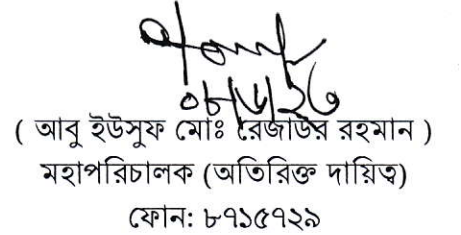 ( আবু ইউসুফ মোঃ রেজাউর রহমান )
মহাপরিচালক (অতিরিক্ত দায়িত্ব)
ফোন: ৮৭১৫৭২৯